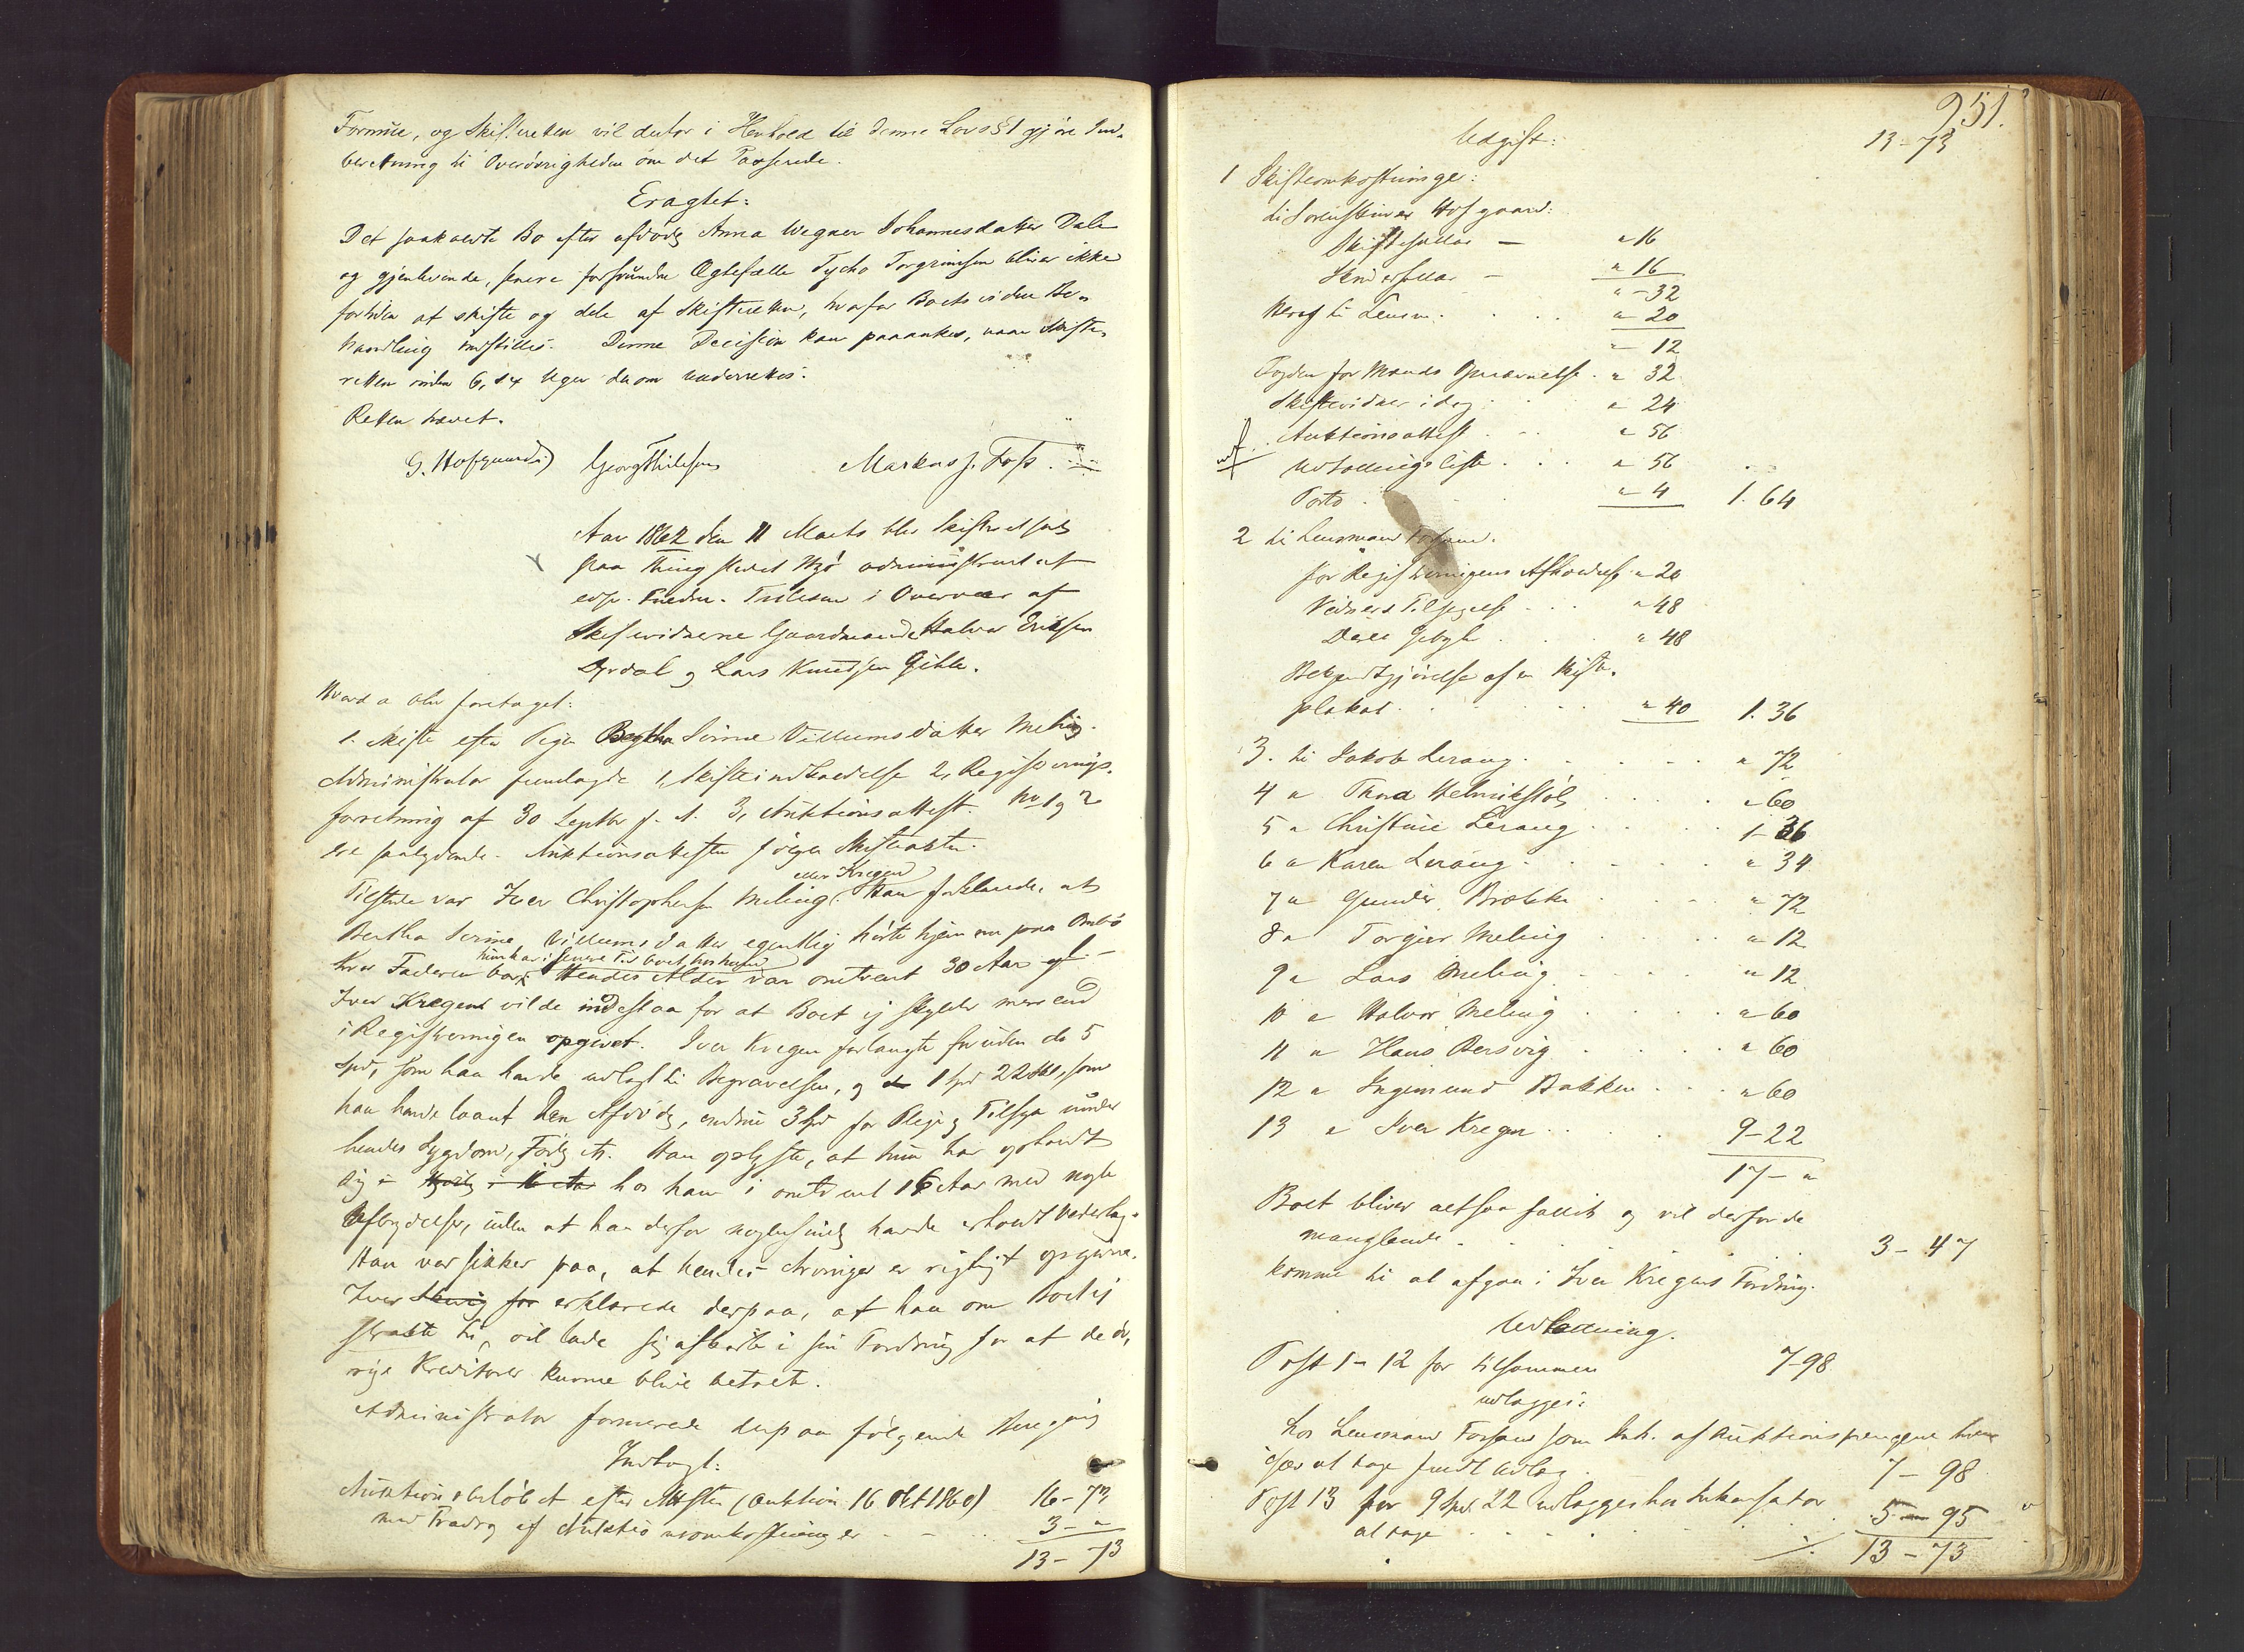 Formue, og Skifteretten vil derfor i Henhold til denne Lovs § 1 gjøre Ind-
beretning til Overøvrigheden om det Passerede.
Eragtet:
Det saakaldte Bo efter afdøde Anna Wegner Johannesdatter Dale
og gjenlevende, senere forsvundne Ægtefælle Tycho Torgrimsen bliver ikke
forhden at skifte og dele af Skifteretten, hvorfor Boets viden Be-
handling indstilles. Denne Decision kan paaankes, naar Skifte-
retten inden 6, sex Uger derom underrettes.
Retten hævet.
G. Hofgaard Georg Thilesen Markus J. Foss
Aar 1862 den 11 Marts blev Skifteret sat
paa Thingstedet Hjø administreret af
Tulesen i Overvær af
Skiftevidnerne Gaardmænd Halvor Eriksen
Dyrdal og Lars Knudsen Gihle.
Hvorda blev foretaget:
1. Skifte efter Pigen Bertha Serine Villumsdatter Meling.
Administrator fremlagde 1, Skifteindkaldelse 2, Registrerings-
forretning af 30 Septbr f. A. 3, Auktionsattest. No 1 og 2
ere saalydende. Auktionsattesten følger Skifteakten.
eller Kregen
Tilstede var Iver Christophersen Meling. Han forklarede, at
Bertha Serine Villumsdatter egentlig hørte hjemme paa Ombo
hun har i senere Tid boet hos ham
hvor Faderen bor. Hendes Alder var omtrent 30 Aar gl.
Iver Kregen vilde indestaa for at Boet ej skylder mere end
i Registreringen opgivet. Iver Kregen forlangte foruden de 5
Spd, som han havde udlagt til Begravelsen, og 1 Spd 22 Skl, som
han havde laant den Afdøde, endnu 3 Spd for Pleje og Tilsyn under
hendes Sygdom, Føde etc. Han oplyste, at hun har opholdt
sig hos ham i omtrent 16 Aar med nogle
Afbrydelser, uden at han derfor nogensinde havde erholdt Vederlag.
Han var sikker paa, at hendes Arvinger er rigtigt opgivne.
Iver erklærede derpaa, at han om Boet ej
strakte til, vil lade sig afkorte i sin Fordring for at de øv-
rige Kreditorer kunne blive betalt.
Administrator formerede derpaa følgende Beregning
Indtægt:
Auktionsbeløbet efter Attesten (Auktion 16 Okt 1860) 16-73
med Fradrag af Auktionsomkostninger 3 - "
13 - 73
951.
Udgift: 13-73
1 Skifteomkostninger:
til Sorenskriver Hofgaard:
Skiftesallar — " 16
Skriversallar — " 16
" - 32
Heraf til Lensm. " 20
" 12
Fogden for Mænds Opnævnelse " 32
Skiftevidner idag " 24
Auktionsattest " 56
Udlodningsliste " 56
Porto " 4 1. 64
2 til Lensmand Forsand.
for Registreringens Afholdelse " 20
Vidners Tilsigelse " 48
Deres Gebyr " 48
Bekjendtgjørelse af en Skifte-
plakat " 40 1. 36
3. til Jakob Lerang " 72
4 " Thora Helmikstøl " 60
5 " Christine Lerang 1-36
6 " Karen Lerang " 34
7 " Gunder Brække " 72
8 " Torger Meling " 12
9 " Lars Meling " 12
10 " Halvor Meling " 60
11 " Hans Bersvig " 60
12 " Ingemund Bakken " 60
13 " Iver Kregen 9-22
17 - "
Boet bliver altsaa fallit og vil derfor de
manglende 3 - 47
komme til at afgaa i Iver Kregens Fordring.
Udlodning.
Post 1 - 12 for tilsammen 7-98
udlægges:
hos Lensmand Forsand som Ink. af Auktionspengene hvem
især at tage fuldt Udlæg 7 - 98
Post 13 for 9 Spd. 22 udlægges hos Inkassator
at tage 5 - 95
13 - 73